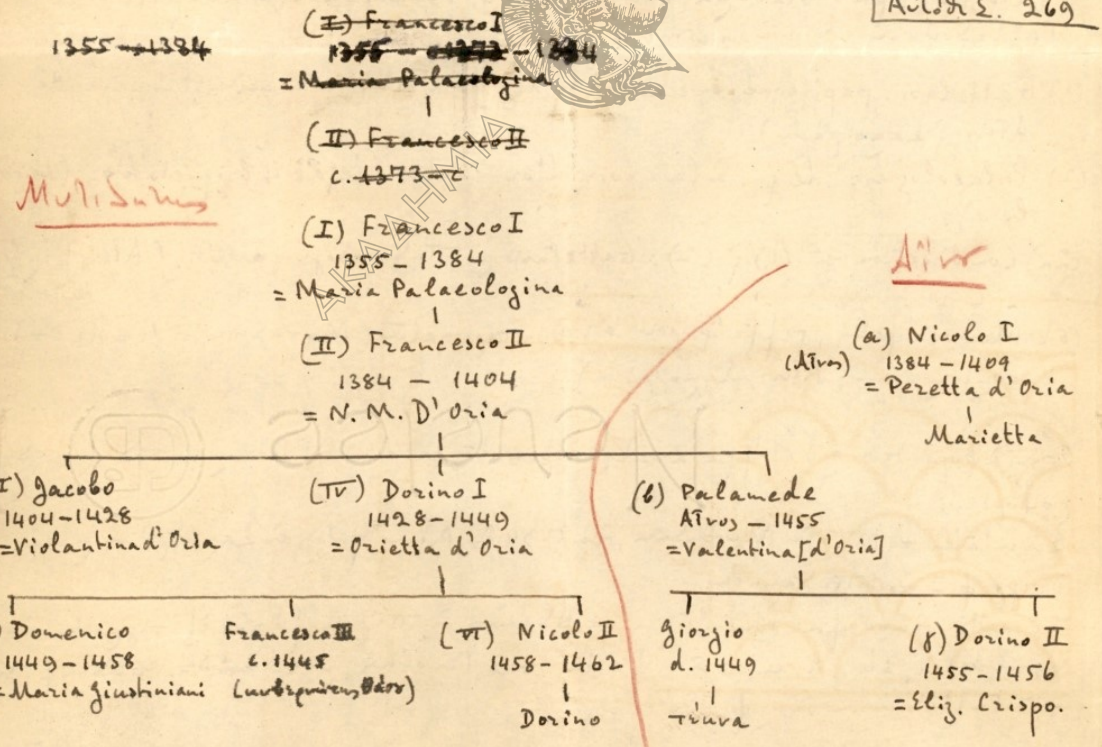 269
(I) Francesco I
1355 – 1384
1355 – 1373 – 1384
= Maria Palaeologina
(II) Francesco II
c. 1373 – c
ΑΚΑΔΗΜΙΑ
(I) Francesco I
1355 – 1384
= Maria Palaeologina
Αἶνος
(II) Francesco II
1384 – 1404
= N. M. D'Oria
(a) Nicolo I
(Αἶνος) 1384 – 1409
= Peretta d'Oria
Marietta
I) Jacobo
1404–1428
=Violantina d'Oria
(IV) Dorino I
1428–1449
= Orietta d'Oria
(b) Palamede
Αἶνος – 1455
=Valentina [d'Oria]
) Domenico
1449–1458
=Maria Giustiniani
Francesco III
c. 1445
(VI) Nicolo II
1458–1462
Dorino
Giorgio
d. 1449
τέκνα
(γ) Dorino II
1455–1456
=Eliz. Crispo.